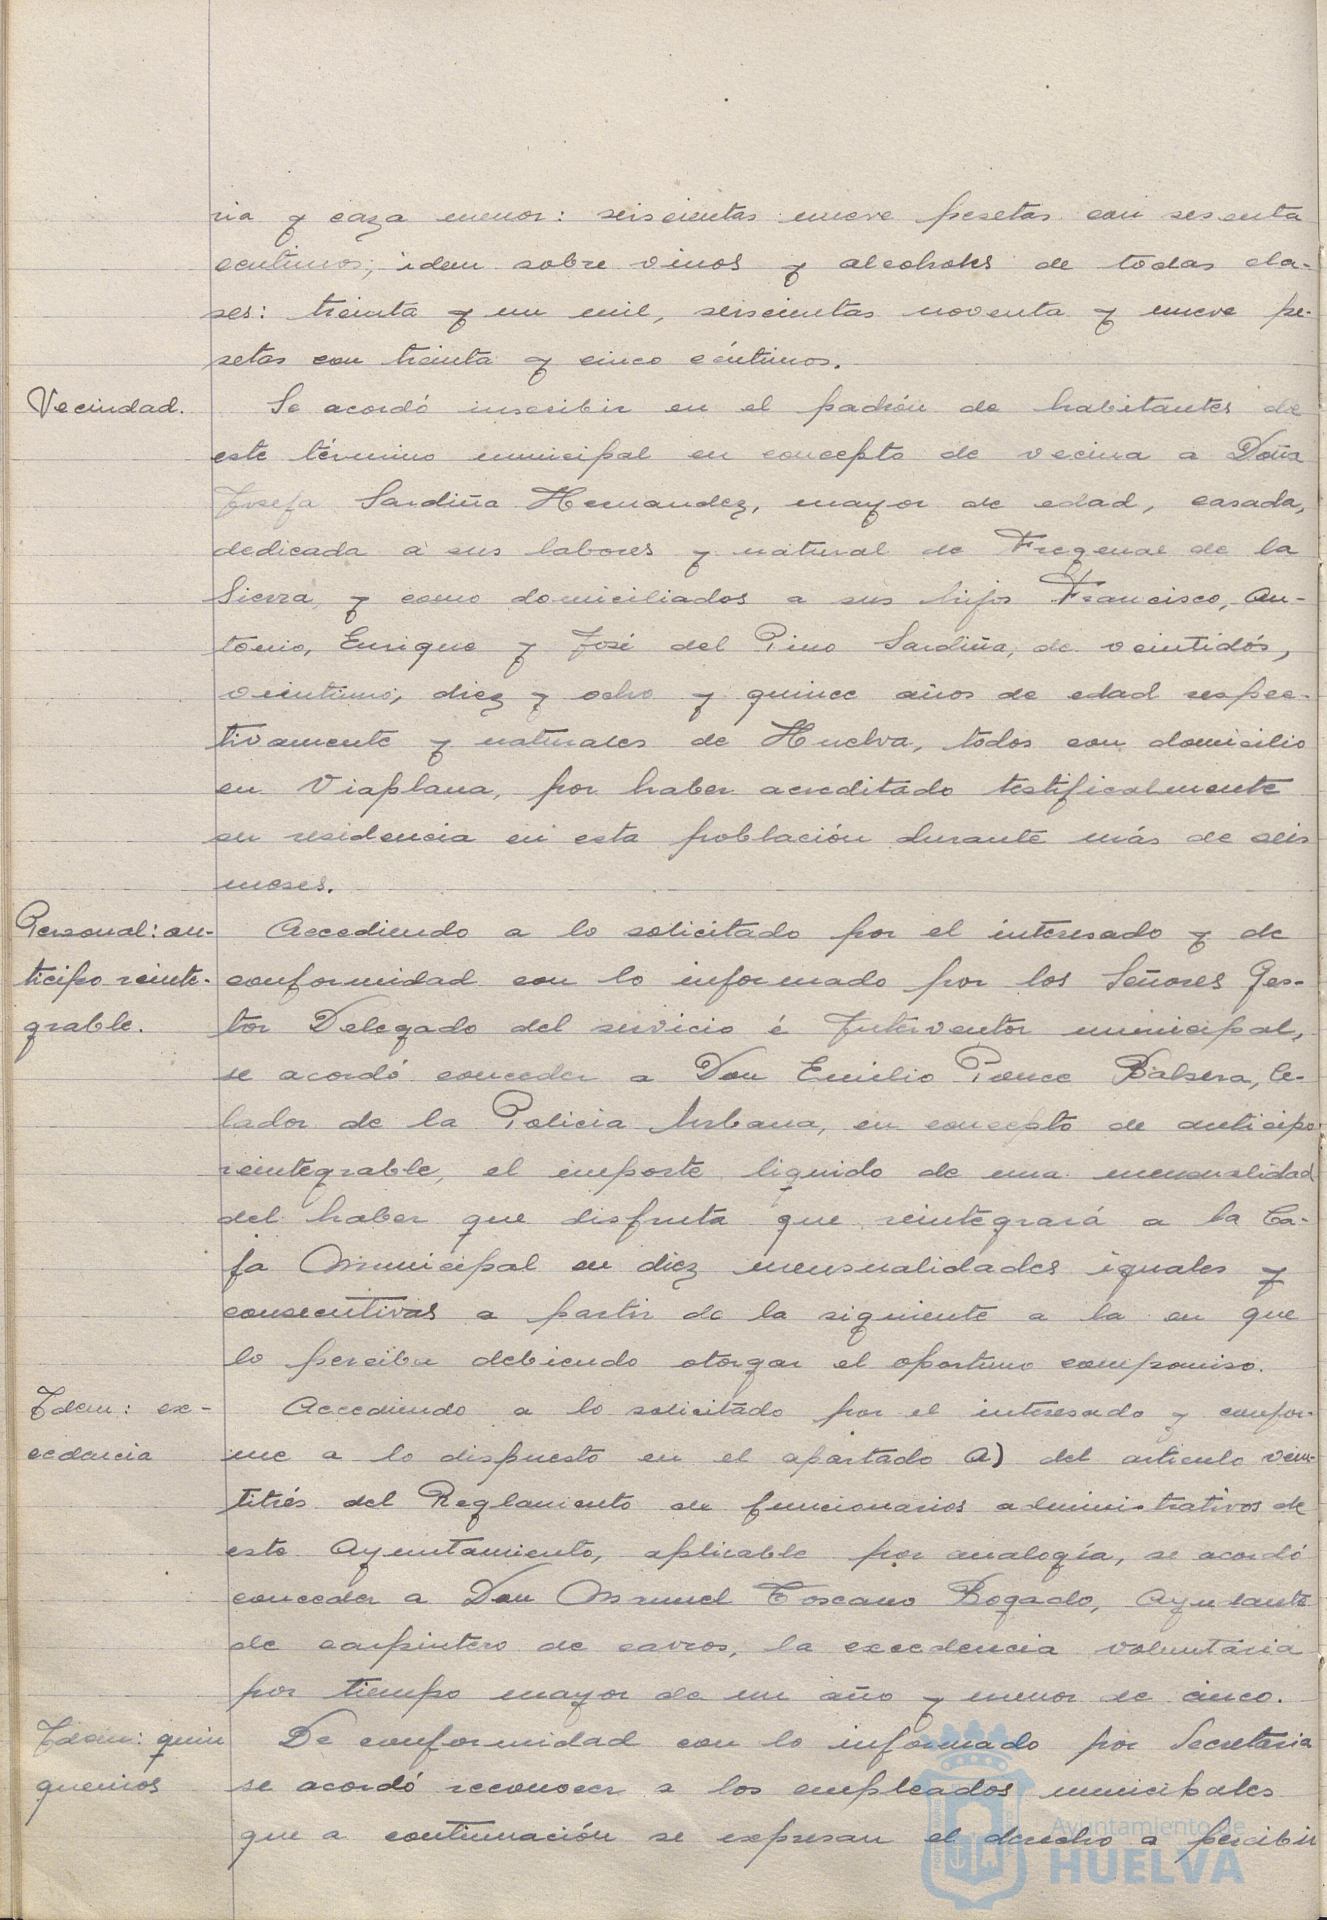 ria y caza menor: seiscientas nueve pesetas con sesenta
centimos; idem sobre vinos y alcoholes de todas cla-
ses: treinta y un mil, seiscientas noventa y nueve pe-
setas con treinta y cinco céntimos.
Vecindad.
Se acordó inscribir en el padrón de habitantes de
este término municipal en concepto de vecina a Doña
Josefa Sardiña Hernandez, mayor de edad, casada,
dedicada a sus labores y natural de Fregenal de la
Sierra, y como domiciliados a sus hijos Francisco, An-
tonio, Enrique y José del Pino Sardiña, de veintidós,
veintiuno, diez y ocho y quince años de edad respec-
tivamente y naturales de Huelva, todos con domicilio
en Viaplana, por haber acreditado testificalmente
su residencia en esta población durante más de seis
meses.
Personal: an-
ticipo reinte-
grable.
Accediendo a lo solicitado por el interesado y de
conformidad con lo informado por los Señores Ges-
tor Delegado del servicio é Interventor municipal,
se acordó conceder a Don Emilio Ponce Balsera, Ce-
lador de la Policia Urbana, en concepto de anticipo
reintegrable, el importe liquido de una mensualidad
del haber que disfruta que reintegrará a la Ca-
ja Municipal en diez mensualidades iguales y
consecutivas a partir de la siguiente a la en que
lo perciba debiendo otorgar el oportuno compromiso.
Idem: ex-
cedencia
Accediendo a lo solicitado por el interesado y confor-
me a lo dispuesto en el apartado A) del articulo vein-
titrés del Reglamento de funcionarios administrativos de
este Ayuntamiento, aplicable por analogía, se acordó
conceder a Don Manuel Toscano Bogado, Ayudante
de carpintero de carros, la excedencia voluntaria
por tiempo mayor de un año y menor de cinco.
Idem: quin
quenios
De conformidad con lo informado por Secretaria
se acordó reconocer a los empleados municipales
que a continuación se expresan el derecho a percibir
Ayuntamiento de
HUELVA